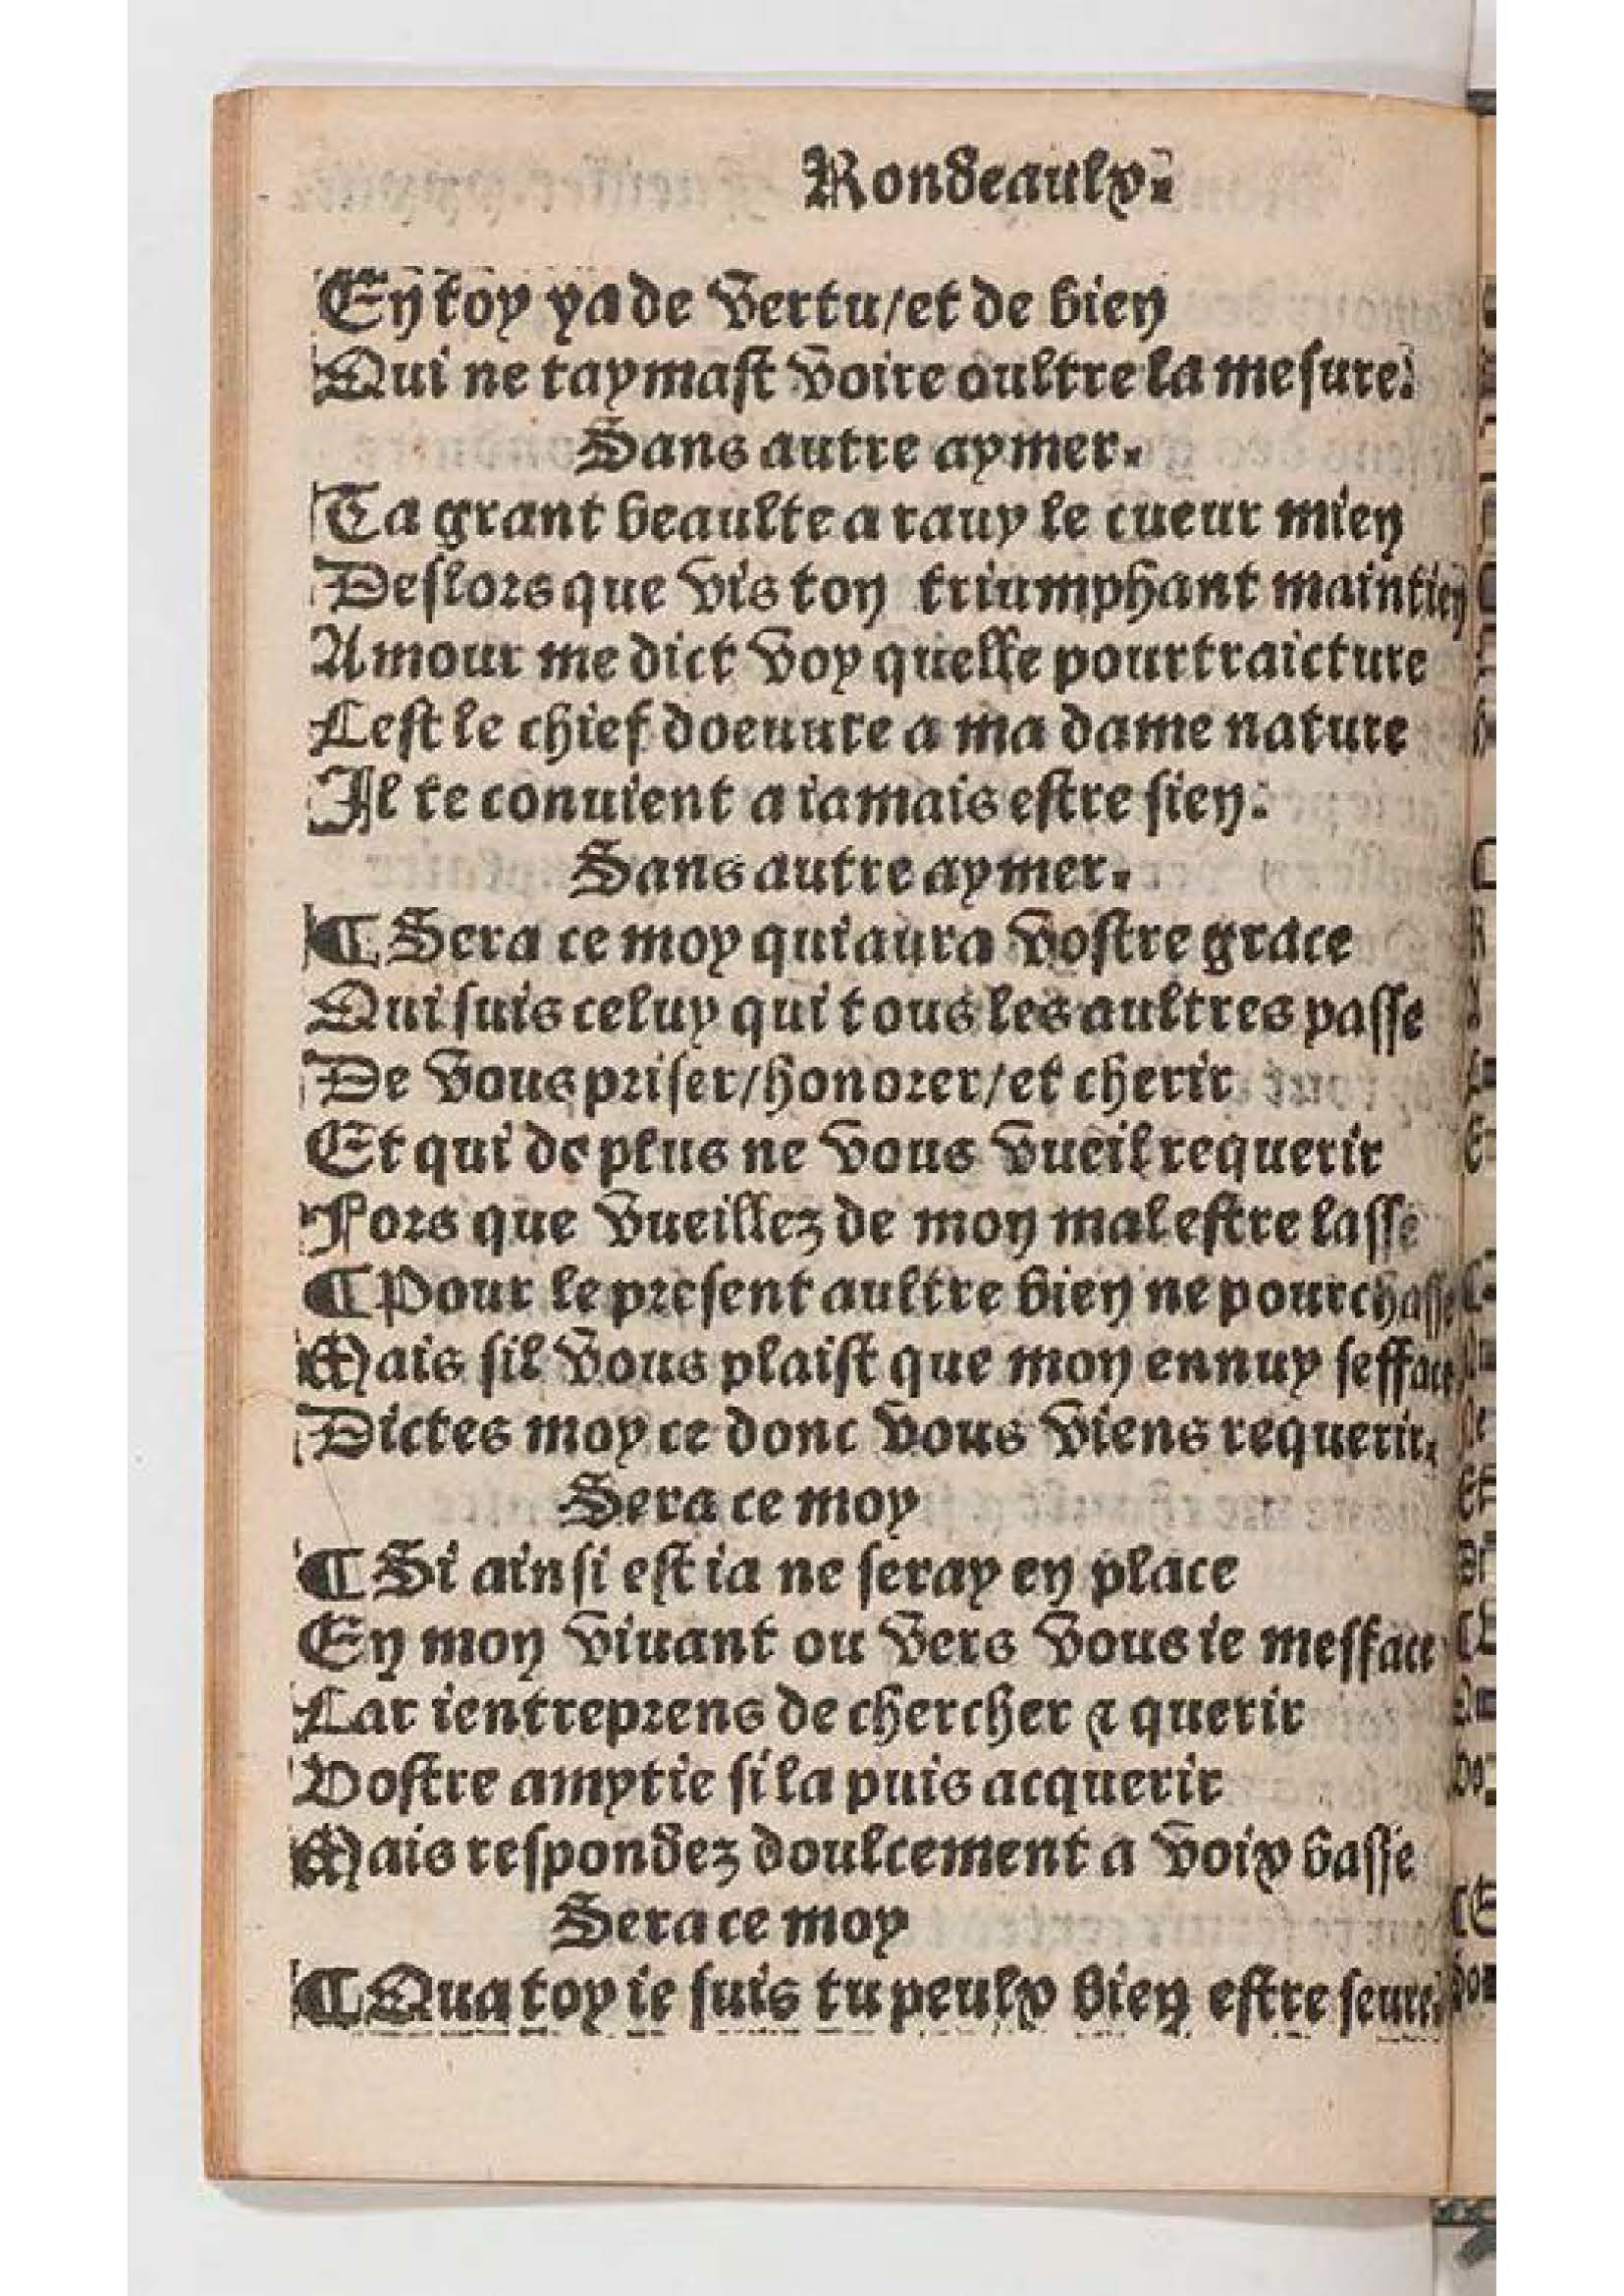 Rondeaulx.
En toy ya de vertu/et de bien
Qui ne taymast voire oultre la mesure.
Sans autre aymer.
Ta grant beaulte a rauy le cueur mien
Deslors que vis ton triumphant maintien
Amour me dict voy quelle pourtraicture
Cest le chief doeuure a ma dame nature
Il te conuient a iamais estre sien.
Sans autre aymer.
¶ Sera ce moy qui aura vostre grace
Qui suis celuy qui tous les aultres passe
De vous priser/honorer/et cherir
Et qui de plus ne vous vueil requerir
Fors que vueillez de mon mal estre lasse
¶ Pour le present aultre bien ne pourchasse
Mais sil vous plaist que mon ennuy sefface
Dictes moy ce donc vous viens requerir.
Sera ce moy
¶ Si ainsi est ia ne seray en place
En mon viuant ou vers vous ie mefface
Car ientreprens de chercher & querir
Vostre amytie si la puis acquerir
Mais respondez doulcement a voix basse
Sera ce moy
¶ Qua toy ie suis tu peulx bien estre seure.